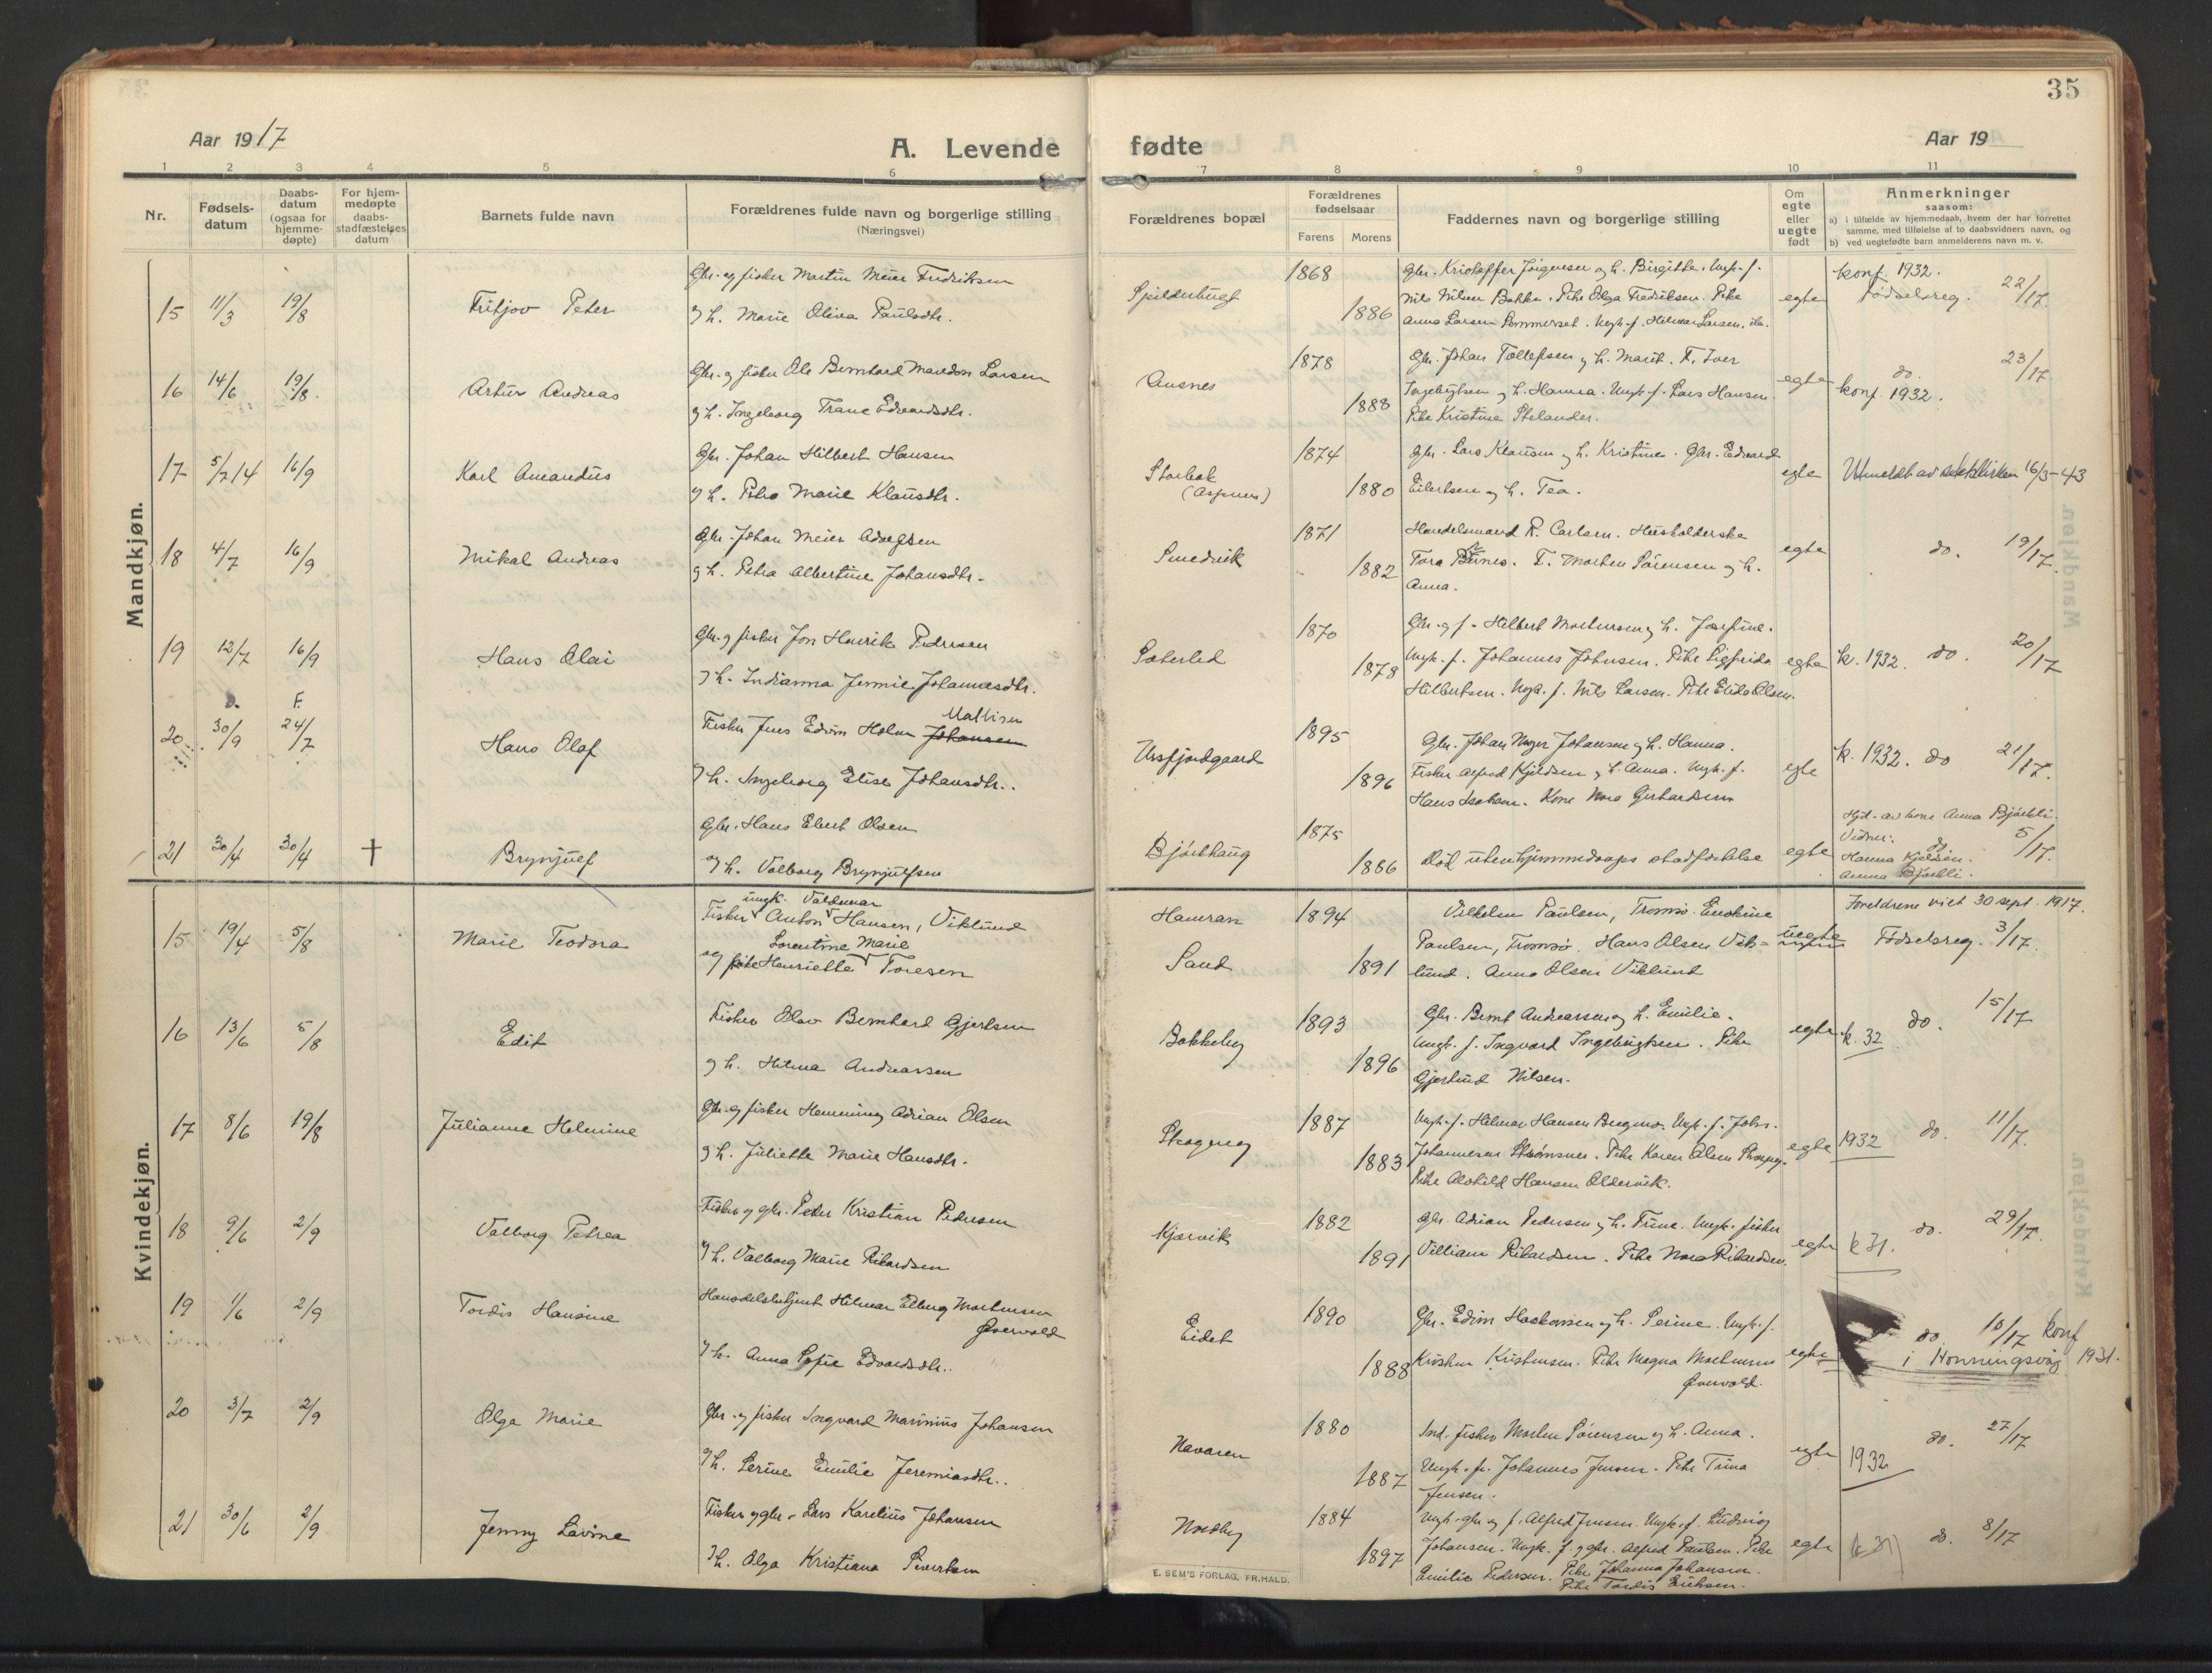 35
Aar 1917
A. Levende
fødte
Aar 19
1 2 3 4 5 6 7 8 9 10 11
Nr.
Fødsels-
datum
Daabs-
datum
(ogsaa for
hjemme-
døpte)
For hjem-
medøpte
daabs-
stadfæstelses
datum
Barnets fulde navn
Forældrenes fulde navn og borgerlige stilling
(Næringsvei)
Forældrenes bopæl
Forældrenes
fødselsaar
Farens Morens
Faddernes navn og borgerlige stilling
Om
egte
eller
uegte
født
Anmerkninger
saasom:
a) i tilfælde av hjemmedaab, hvem der har forrettet
samme, med tilføielse af to daabsvidners navn, og
b) ved uegtefødte barn anmelderens navn m. v.
Mandkjøn.
15 11/3 19/8 Fritjov Peter
Gbr. og fisker Martin Meier Fredriksen
og h. Marie Oliva Paulsdtr.
Spilderbugt 1868 1886
Gbr. Kristoffer Jørgensen og h. Birgitte. Ungk. f.
Nils Nilsen Bakke. Pike Olga Fredriksen. Pike
Anna Larsen Sommerset. Ungk. f. Hilmar Larsen, ib.
egte
konf. 1932.
Fødselsreg. 22/17.
16 14/6 19/8 Artur Andreas
Gbr. og fisker Ole Bernhard Larsen
og h. Ingeborg Trane Edvardsdtr.
Ausnes 1878 1888
Gbr. Johan Tollefsen og h. Marit. F. Iver
Ingebrigtsen og h. Hanna. Ungk. f. Lars Hansen.
Pike Kristine Stelander.
egte
do. 23/17.
konf. 1932.
17 5/7 14 16/9 Karl Amandus
Gbr. Johan Hilbert Hansen
og h. Petra Marie Klausdtr.
Storbak
(Aspenes) 1874 1880
Gbr. Lars Klausen og h. Kristine. Gbr. Edvard
Eilertsen og h. Tea.
egte
Utmeldt av statskirken 16/3-43
18 4/7 16/9 Mikal Andreas
Gbr. Johan Meier Adolfsen
og h. Petra Albertine Johansdtr.
Smedvik 1871 1882
Handelsmand R. Carlsen. Husholderske
Tora. F. Morten Sørensen og h.
Anna.
egte do. 19/17.
19 12/7 16/9 Hans Olai
Gbr. og fisker Jon Henrik Pedersen
og h. Indianna Jennie Johannesdtr.
Sæterlid 1870 1878
Gbr. og f. Hilbert Mortensen og h. Josefine.
Ungk. f. Johannes Johnsen. Pike Sigfrida
Hilbertsen. Ungk. f. Nils Larsen. Pike Elida Olsen.
egte k. 1932. do. 20/17
D. F.
20 30/9 24/7 Hans Olaf
Mathisen
Fisker Jens Edvin Holm Johansen
og h. Ingeborg Elise Johansdtr.
Ursfjordgaard 1895 1896
Gbr. Johan Meyer Johansen og h. Hanna.
Fisker Alfred Kjeldsen og h. Anna. Ungk. f.
Hans Isaksen. Kone Nora Gerhardsen
egte k. 1932. do 21/17.
21 30/4 30/4 † Brynjulf
Gbr. Hans Ebert Olsen
og h. Valborg Brynjulfsen
Bjørkhaug 1875 1886
Død uten hjemmedaaps stadfæstelse
egte
Hjd. av kone Anna Bjørkli.
Vidner: do 5/17.
Hanna Kjeldsen.
Anna Bjørkli.
Kvindekjøn.
15 19/4 5/8 Marie Teodora
ungk. Valdemar
Fisker Anton Hansen, Viklund
Lorentine Marie
og pike Henriette Toresen
Hamran 1894
Sand 1891
Vilhelm Paulsen, Tromsø. Enokine
Paulsen, Tromsø. Hans Olsen Vik-
lund. Anna Olsen Viklund
uegte
Foreldrene viet 30 sept. 1917.
Fødselsreg. 3/17.
16 13/6 5/8 Edit
Fisker Olav Bernhard Gjertsen
og h. Hilma Andreassen
Bakkeby 1893 1896
Gbr. Bernt Andreassen og h. Emilie.
Ungk. f. Ingvard Ingebrigtsen. Pike
Gjertrud Nilsen.
egte k. 32 do. 15/17
17 8/6 19/8 Julianne Helmine
Gbr. og fisker Henning Adrian Olsen
og h. Juliette Marie Hansdtr.
Skogeng 1887 1883
Ungk. f. Hilmar Hansen. Ungk. f. Johs.
Johannesen Strømsnes. Pike Karen Olsen Skogeng.
Pike Alvhild Hansen Oldervik.
egte 1932 do. 11/17.
18 9/6 2/9 Valborg Petrea
Fisker og gbr. Peder Kristian Pedersen
og h. Valborg Marie Rikardsen
Kjærvik 1882 1891
Gbr. Adrian Pedersen og h. Trine. Ungk. fisker
Villiam Rikardsen. Pike Nora Rikardsen.
egte k 31. do. 29/17.
19 1/6 2/9 Tordis Hansine
Handelsbetjent Hilmar Elberg Mortensen
Øvervold
og h. Anna Sofie Edvardsdtr.
Eidet 1890 1888
Gbr. Edvin Haakonsen og h. Serine. Ungk. f.
Kristen Kristensen. Pike Magna Mortensen
Øvervold.
egte do. 10/17 konf
i Honningsvåg 1931.
20 3/7 2/9 Olga Marie
Gbr. og fisker Ingvard Marinius Johansen
og h. Serine Emilie Jeremiasdtr.
Navaren 1880 1887
Ind. fisker Morten Sørensen og h. Anna.
Ungk. f. Johannes Jensen. Pike Trina
Jensen.
egte 1932 do. 27/17
21 30/6 2/9 Jenny Lavine
Fisker og gbr. Lars Karelius Johansen
og h. Olga Kristiana Sivertsen
Nordby 1884 1897
Ungk. gbr. og f. Alfred Jensen. Ungk. f. Ludvig
Johansen. Ungk. f. og gbr. Alfred Paulsen. Pike
Emilie Pedersen. Pike Johanna Johansen.
Pike Tordis Eriksen.
egte (k 31) do. 8/17
E. SEM'S FORLAG, FR.HALD.